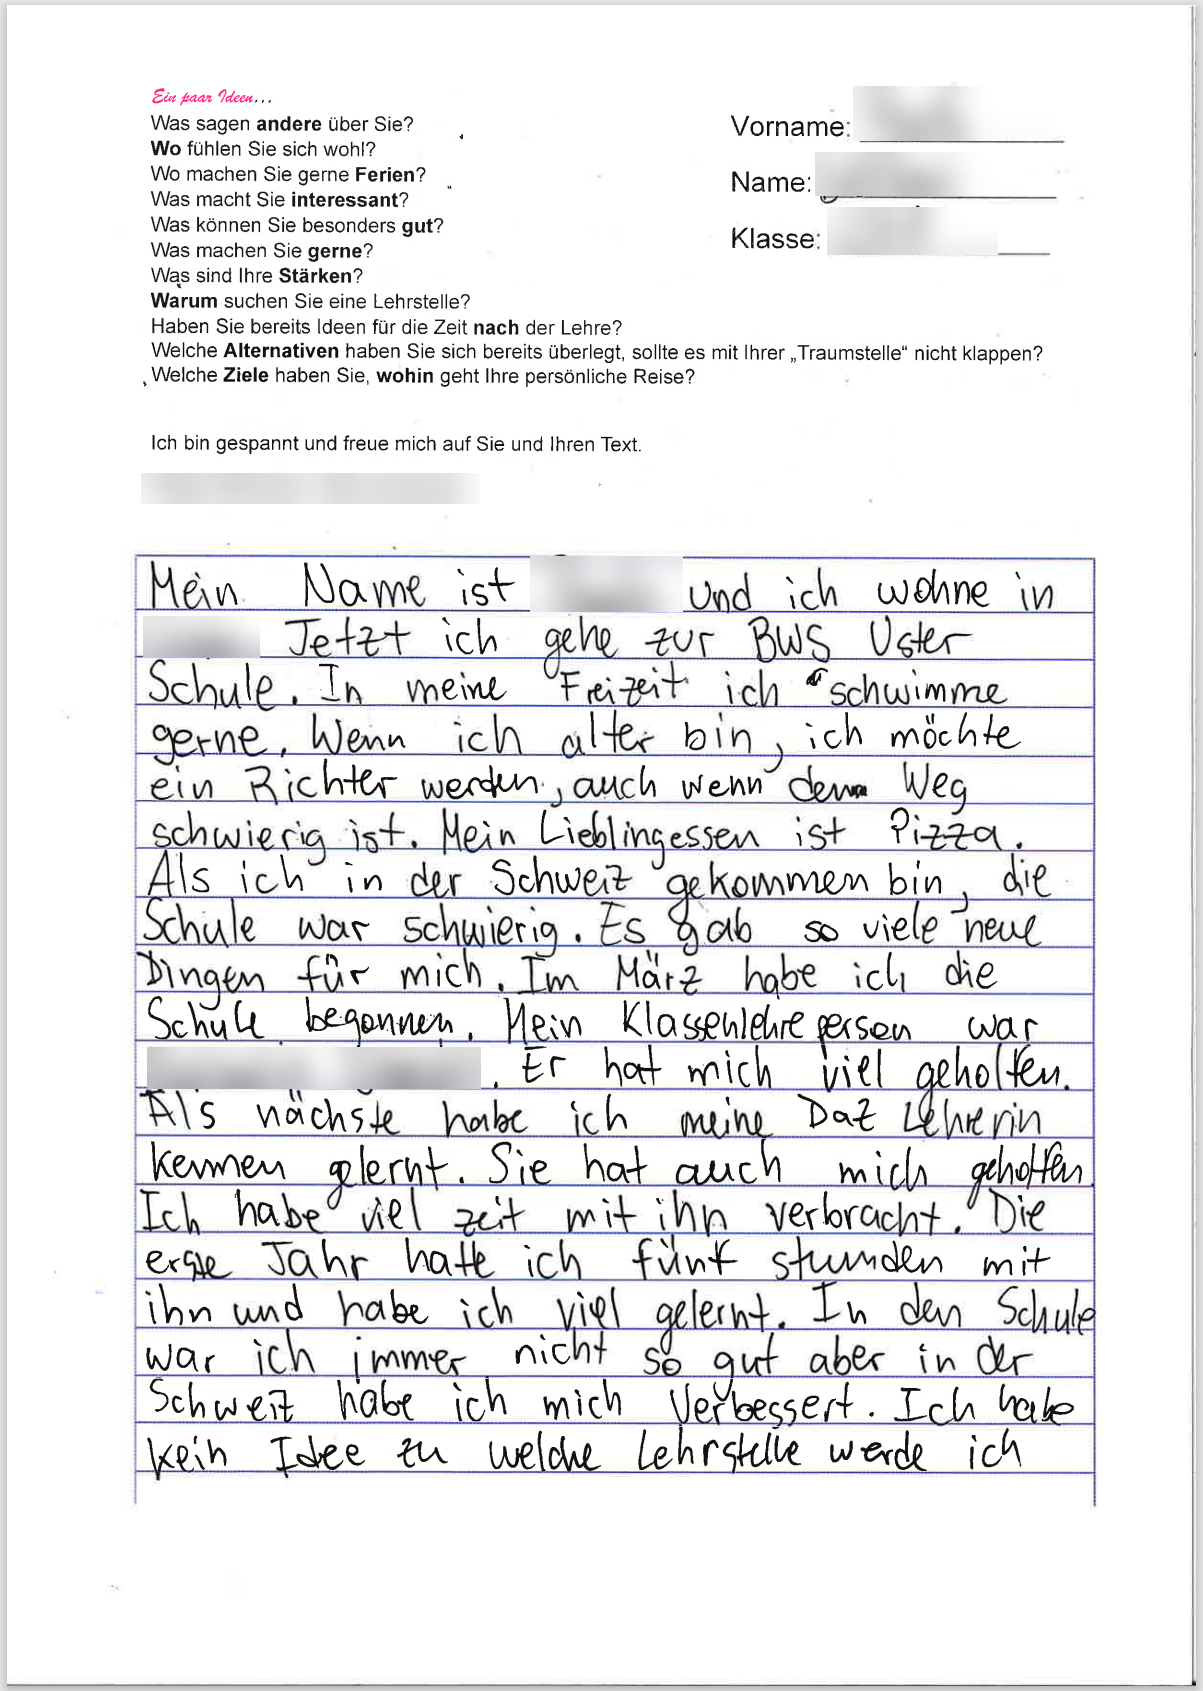 Ein paar Ideen...
Was sagen andere über Sie?
Wo fühlen Sie sich wohl?
Wo machen Sie gerne Ferien?
Was macht Sie interessant?
Was können Sie besonders gut?
Was machen Sie gerne?
Was sind Ihre Stärken?
Warum suchen Sie eine Lehrstelle?
Haben Sie bereits Ideen für die Zeit nach der Lehre?
Welche Alternativen haben Sie sich bereits überlegt, sollte es mit Ihrer „Traumstelle“ nicht klappen?
Welche Ziele haben Sie, wohin geht Ihre persönliche Reise?
Vorname:
Name:
Klasse:
Ich bin gespannt und freue mich auf Sie und Ihren Text.
Mein Name ist und ich wohne in
Jetzt ich gehe zur BWS Uster
Schule. In meine Freizeit ich schwimme
gerne. Wenn ich alter bin, ich möchte
ein Richter werden, auch wenn den Weg
schwierig ist. Mein Lieblingessen ist Pizza.
Als ich in der Schweiz gekommen bin, die
Schule war schwierig. Es gab so viele neue
Dingen für mich. Im März habe ich die
Schule begonnen. Mein Klassenlehreperson war
. Er hat mich viel geholfen.
Als nächste habe ich meine DaZ Lehrerin
kennen gelernt. Sie hat auch mich geholfen
Ich habe viel zeit mit ihn verbracht. Die
erste Jahr hatte ich fünf stunden mit
ihn und habe ich viel gelernt. In den Schule
war ich immer nicht so gut aber in der
Schweiz habe ich mich verbessert. Ich habe
kein Idee zu welche Lehrstelle werde ich